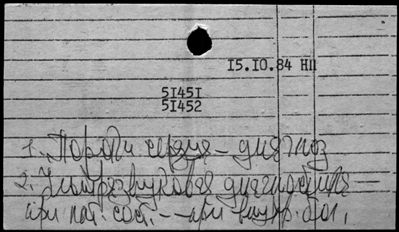 15.10.84 НП
51451
51452
1. Пороки сердца – диагноз
2. Ультразвуковая диагностика –
при пат. сост. – – при внутр. бол.